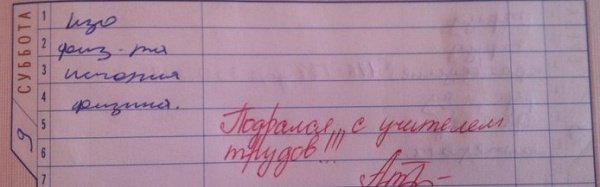 СУББОТА
9
1 изо
2 физ-ра
3 история
4 физика.
5 Подрался, с учителем
6 трудов!!!
7